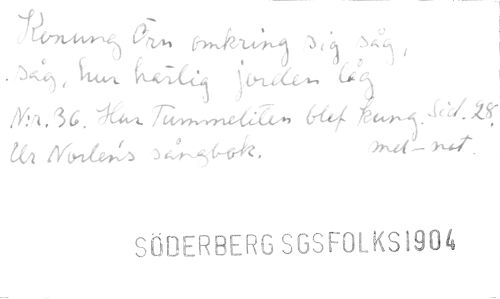 Konung Örn omkring sig såg,
såg, hur härlig jorden låg
N:r. 36. Hur Tummeliten blef kung. Sid. 28.
Ur Norlén's sångbok. mel-not.
SÖDERBERG SGSFOLKS1904